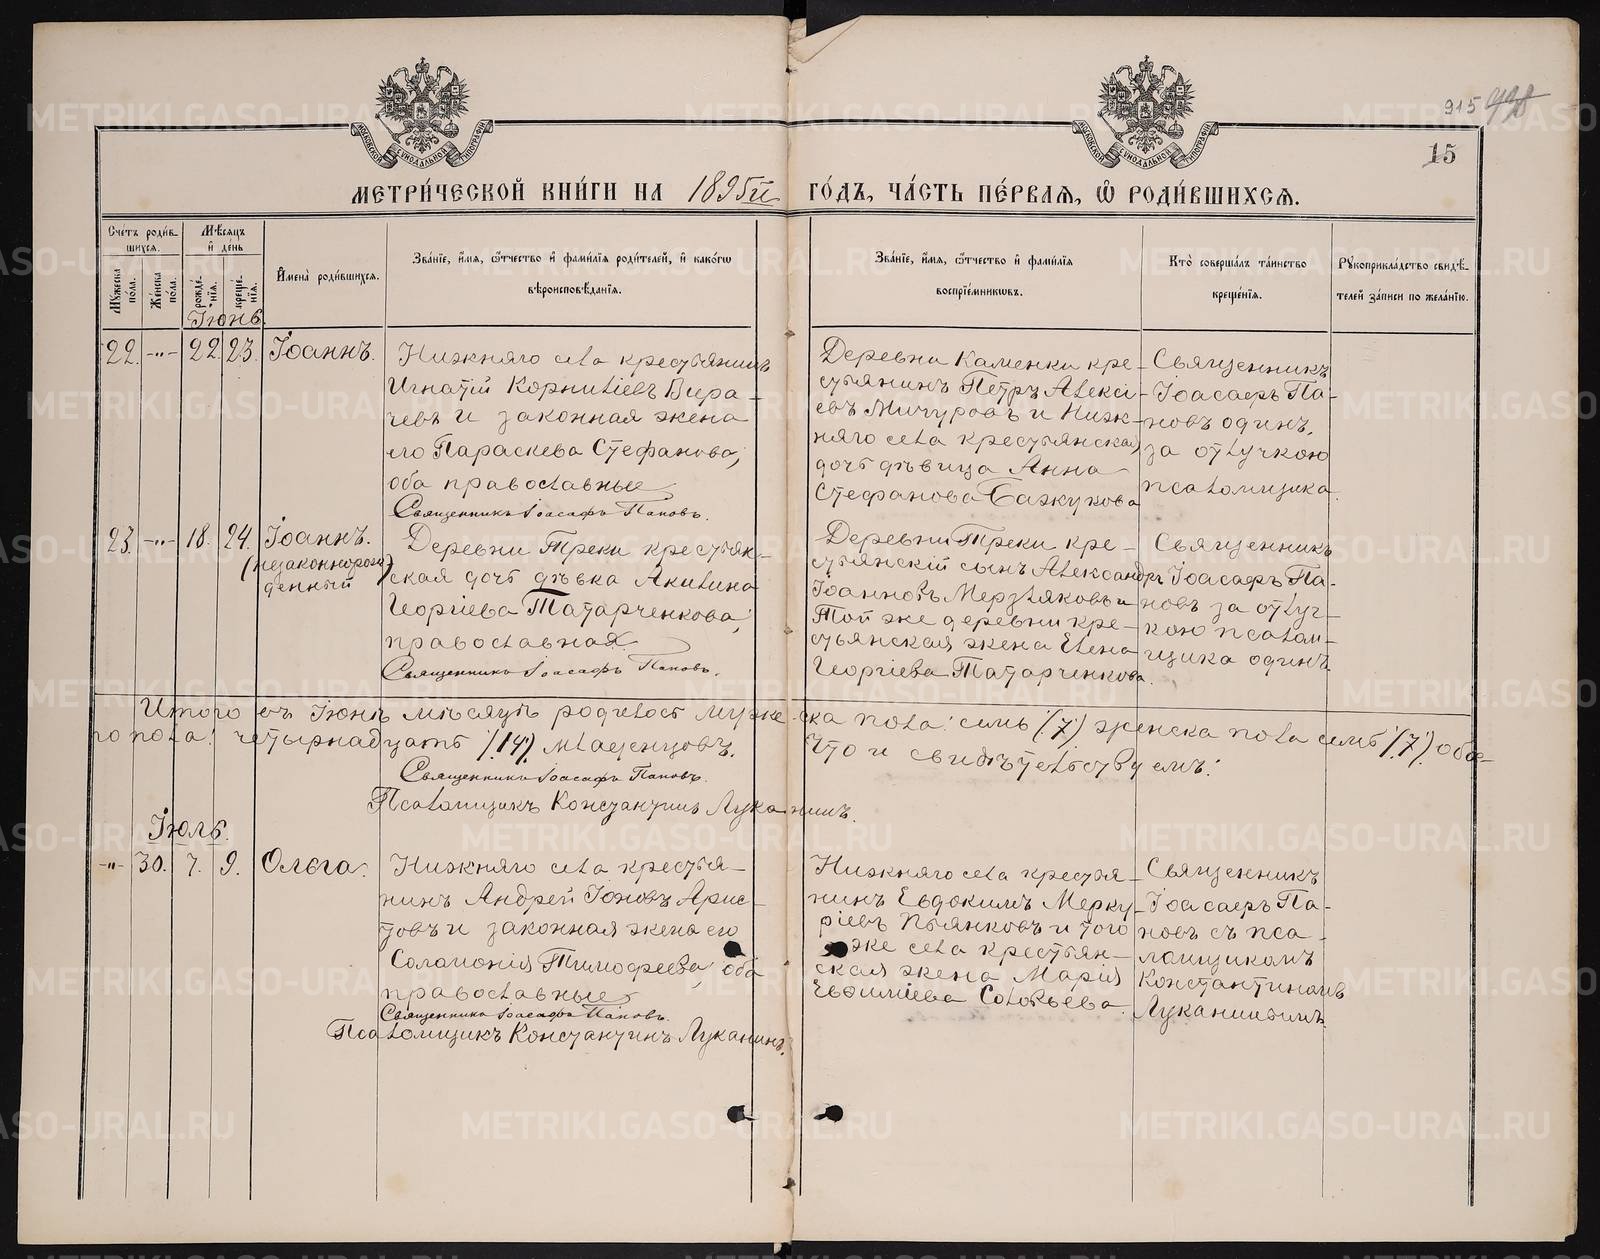 915
15
МОСКОВСКОЙ СѴНОДАЛЬНОЙ ТИПОГРАФІИ
МОСКОВСКОЙ СѴНОДАЛЬНОЙ ТИПОГРАФІИ
МЕТРИ́ЧЕСКОЙ КНИ́ГИ НА 1895й ГО́ДЪ, ЧА́СТЬ ПЕ́РВАЯ, Ѡ҆ РОДИ́ВШИХСЯ.
Сче́тъ роди́вшихся.
Му́жеска по́ла.
Же́нска по́ла.
Мѣ́сяцъ и҆ де́нь
рожде́нїѧ.
креще́нїѧ.
И҆мена̀ роди́вшихсѧ.
Зва́нїе, и҆́мѧ, ѻ҆́тчество и҆ фами́лїѧ роди́телей, и҆ како́гѡ
вѣроисповѣ́данїѧ.
Зва́нїе, и҆́мѧ, ѻ҆́тчество и҆ фами́лїѧ
воспрїе́мникѡвъ.
Кто̀ соверша́лъ та́инство
креще́нїѧ.
Рꙋкоприкла́дство свидѣ́-
телей за́писи по жела́нїю.
Іюнь.
22. -„- 22. 23. Іоаннъ.
Нижняго села крестьянинъ
Игнатій Корниліевъ Вира-
чевъ и законная жена
его Параскева Стефанова,
оба православные
Священникъ Іоасафъ Паповъ.
Деревни Каменки кре-
стьянинъ Петръ Алексі-
евъ Мичуровъ и Ниж-
няго села крестьянская
дочь дѣвица Анна
Стефанова Бажукова
Священникъ
Іоасафъ Па-
повъ одинъ,
за отлучкою
псаломщика.
23. -„- 18. 24. Іоаннъ.
(незаконнорож-
денный)
Деревни Треки крестьян-
ская дочь дѣвка Акилина
Георгіева Татарченкова,
православная.
Священникъ Іоасафъ Паповъ.
Деревни Треки кре-
стьянскій сынъ Александръ
Іоанновъ Мерзляковъ и
той же деревни кре-
стьянская жена Елена
Георгіева Татарченкова.
Священникъ
Іоасафъ Па-
повъ за отлуч-
кою псалом-
щика одинъ
Итого въ Іюнѣ мѣсяцѣ родилось мужеска пола: семь (7) женска пола семь (7), обое-
го пола: четырнадцать (14) младенцовъ. Что и свидѣтельствуемъ:
Священникъ Іоасафъ Паповъ.
Псаломщикъ Константинъ Луканинъ.
Іюль.
-„- 30. 7. 9. Ольга.
Нижняго села крестья-
нинъ Андрей Іоновъ Арис-
товъ и законная жена его
Соломонія Тимофеева, оба
православные
Священникъ Іоасафъ Паповъ.
Псаломщикъ Константинъ Луканинъ.
Нижняго села крестья-
нинъ Евдокимъ Мерку-
ріевъ Пьянковъ и того
же села крестьян-
ская жена Марія
Евфиміева Соловьева.
Священникъ
Іоасафъ Па-
повъ съ пса-
ломщикомъ
Константиномъ
Луканинымъ.
METRIKI.GASO-URAL.RU